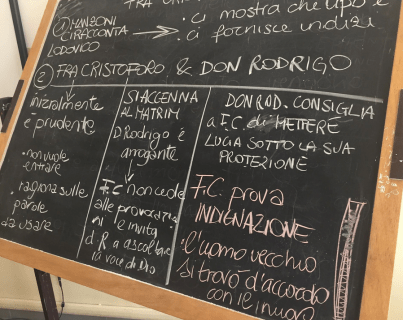 FRA CRIS
① MANZONI
CI RACCONTA
LODOVICO
• ci mostra che tipo è
• ci fornisce indizi
② FRA CRISTOFORO & DON RODRIGO
inizialmente
è prudente
• non vuole
entrare
• ragiona sulle
parole
da usare
SI ACCENNA
AL MATRIM
D. Rodrigo è
arrogante
F.C non cede
alle provocaz
invita
d R a ascoltare
la voce di Dio
DON ROD. CONSIGLIA
a F.C. di METTERE
LUCIA SOTTO LA SUA
PROTEZIONE
F.C. prova
INDIGNAZIONE
• l'uomo vecchio
si trovò d'accordo
con le nuovo